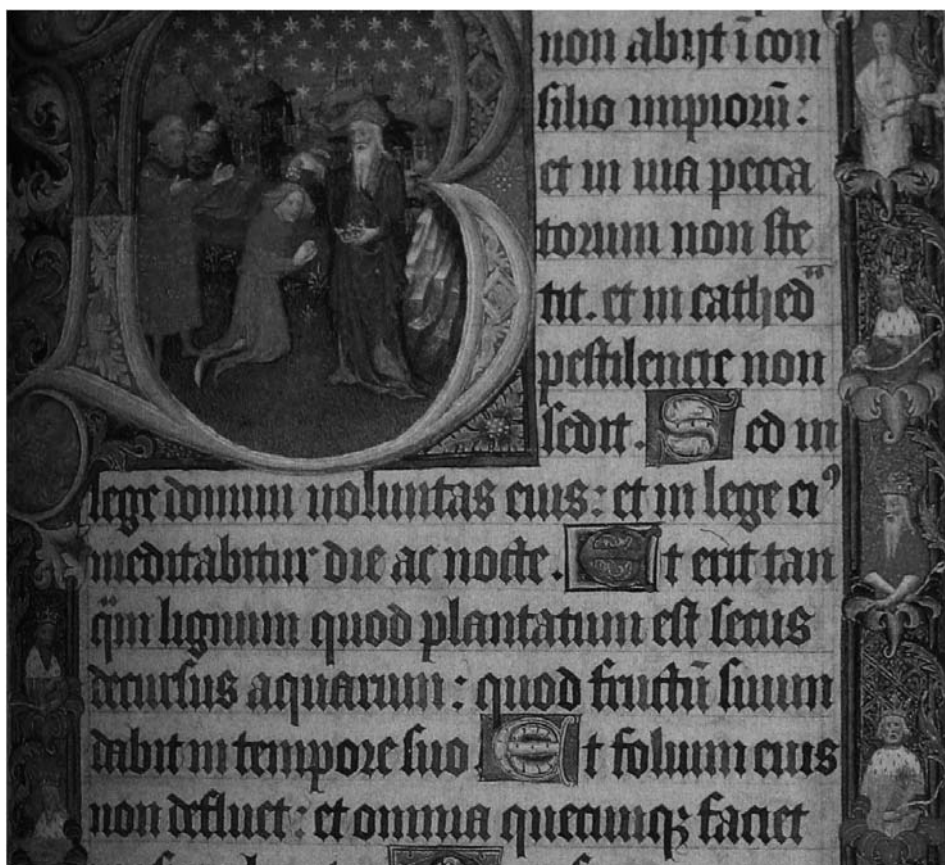 non abijt ī con
silio impiorū :
et in uia pecca
torum non ste
tit. et in cathed̄
pestilencie non
sedit. Sed in
lege domini uoluntas eius : et in lege ei⁹
meditabitur die ac nocte. Et erit tan
q̈m lignum quod plantatum est secus
decursus aquarum : quod fructū suum
dabit in tempore suo. Et folium eius
non defluet : et omnia quecumqꝫ faciet